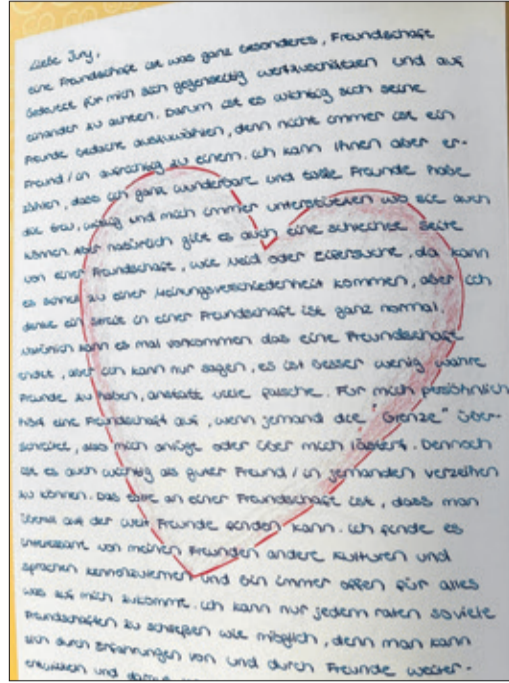 Liebe Jury,
eine Freundschaft ist was ganz besonderes, Freundschaft
bedeutet für mich sich gegenseitig wertzuschätzen und auf
einander zu achten. Darum ist es wichtig sich seine
Freunde bedacht auszuwählen, denn nicht immer ist ein
Freund/in aufrichtig zu einem. Ich kann Ihnen aber er-
zählen, dass ich ganz wunderbare und tolle Freunde habe
die treu, witzig und mich immer unterstützen wo sie auch
können. Aber natürlich gibt es auch eine schlechte Seite
von einer Freundschaft, wie Neid oder Eifersucht, da kann
es schnell zu einer Meinungsverschiedenheit kommen, aber ich
denke ein Streit in einer Freundschaft ist ganz normal.
Natürlich kann es mal vorkommen das eine Freundschaft
endet, aber ich kann nur sagen, es ist besser wenig wahre
Freunde zu haben, anstatt viele falsche. Für mich persöhnlich
hört eine Freundschaft auf, wenn jemand die "Grenze" über-
schreitet, also mich anlügt oder über mich lästert. Dennoch
ist es auch wichtig als guter Freund/in jemanden verzeihen
zu können. Das tolle an einer Freundschaft ist, dass man
überall auf der Welt Freunde finden kann. Ich finde es
interessant von meinen Freunden andere Kulturen und
Sprachen kennenzulernen und bin immer offen für alles
was auf mich zukommt. Ich kann nur jedem raten soviele
Freundschaften zu schließen wie möglich, denn man kann
sich durch Erfahrungen von und durch Freunde weiter-
entwickeln und